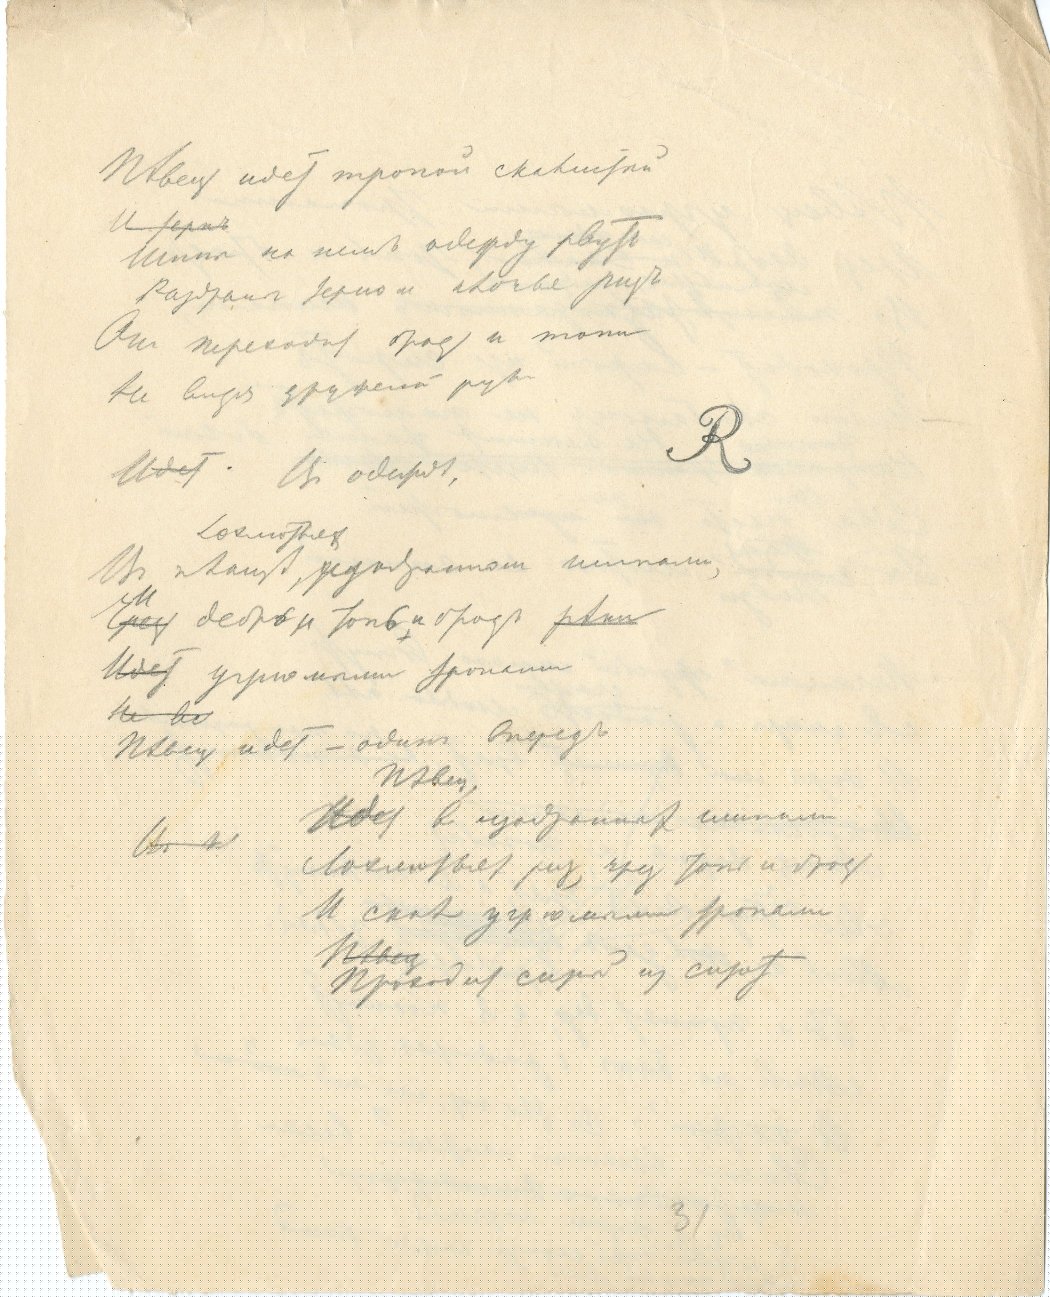 Пѣвец идет тропой скалистой
И терн
Шипы на нем одежду рвут
Раздрали терни клочье риз
Он переходит брод и топи
Не видя дружеской руки
Идет. В одежде,
Лохмотьях
В плаще, изодранном шипами,
И
Чрез дебри и топь и брод
Идет угрюмыми тропами
Не ви
Пѣвец идет – один вперед
Пѣвец,
Идет в изодранных шипами
Лохмотьях риз, чрез топи и брод
И скал угрюмыми тропами
Пѣвец
Проходит сирый из сирот
R
31